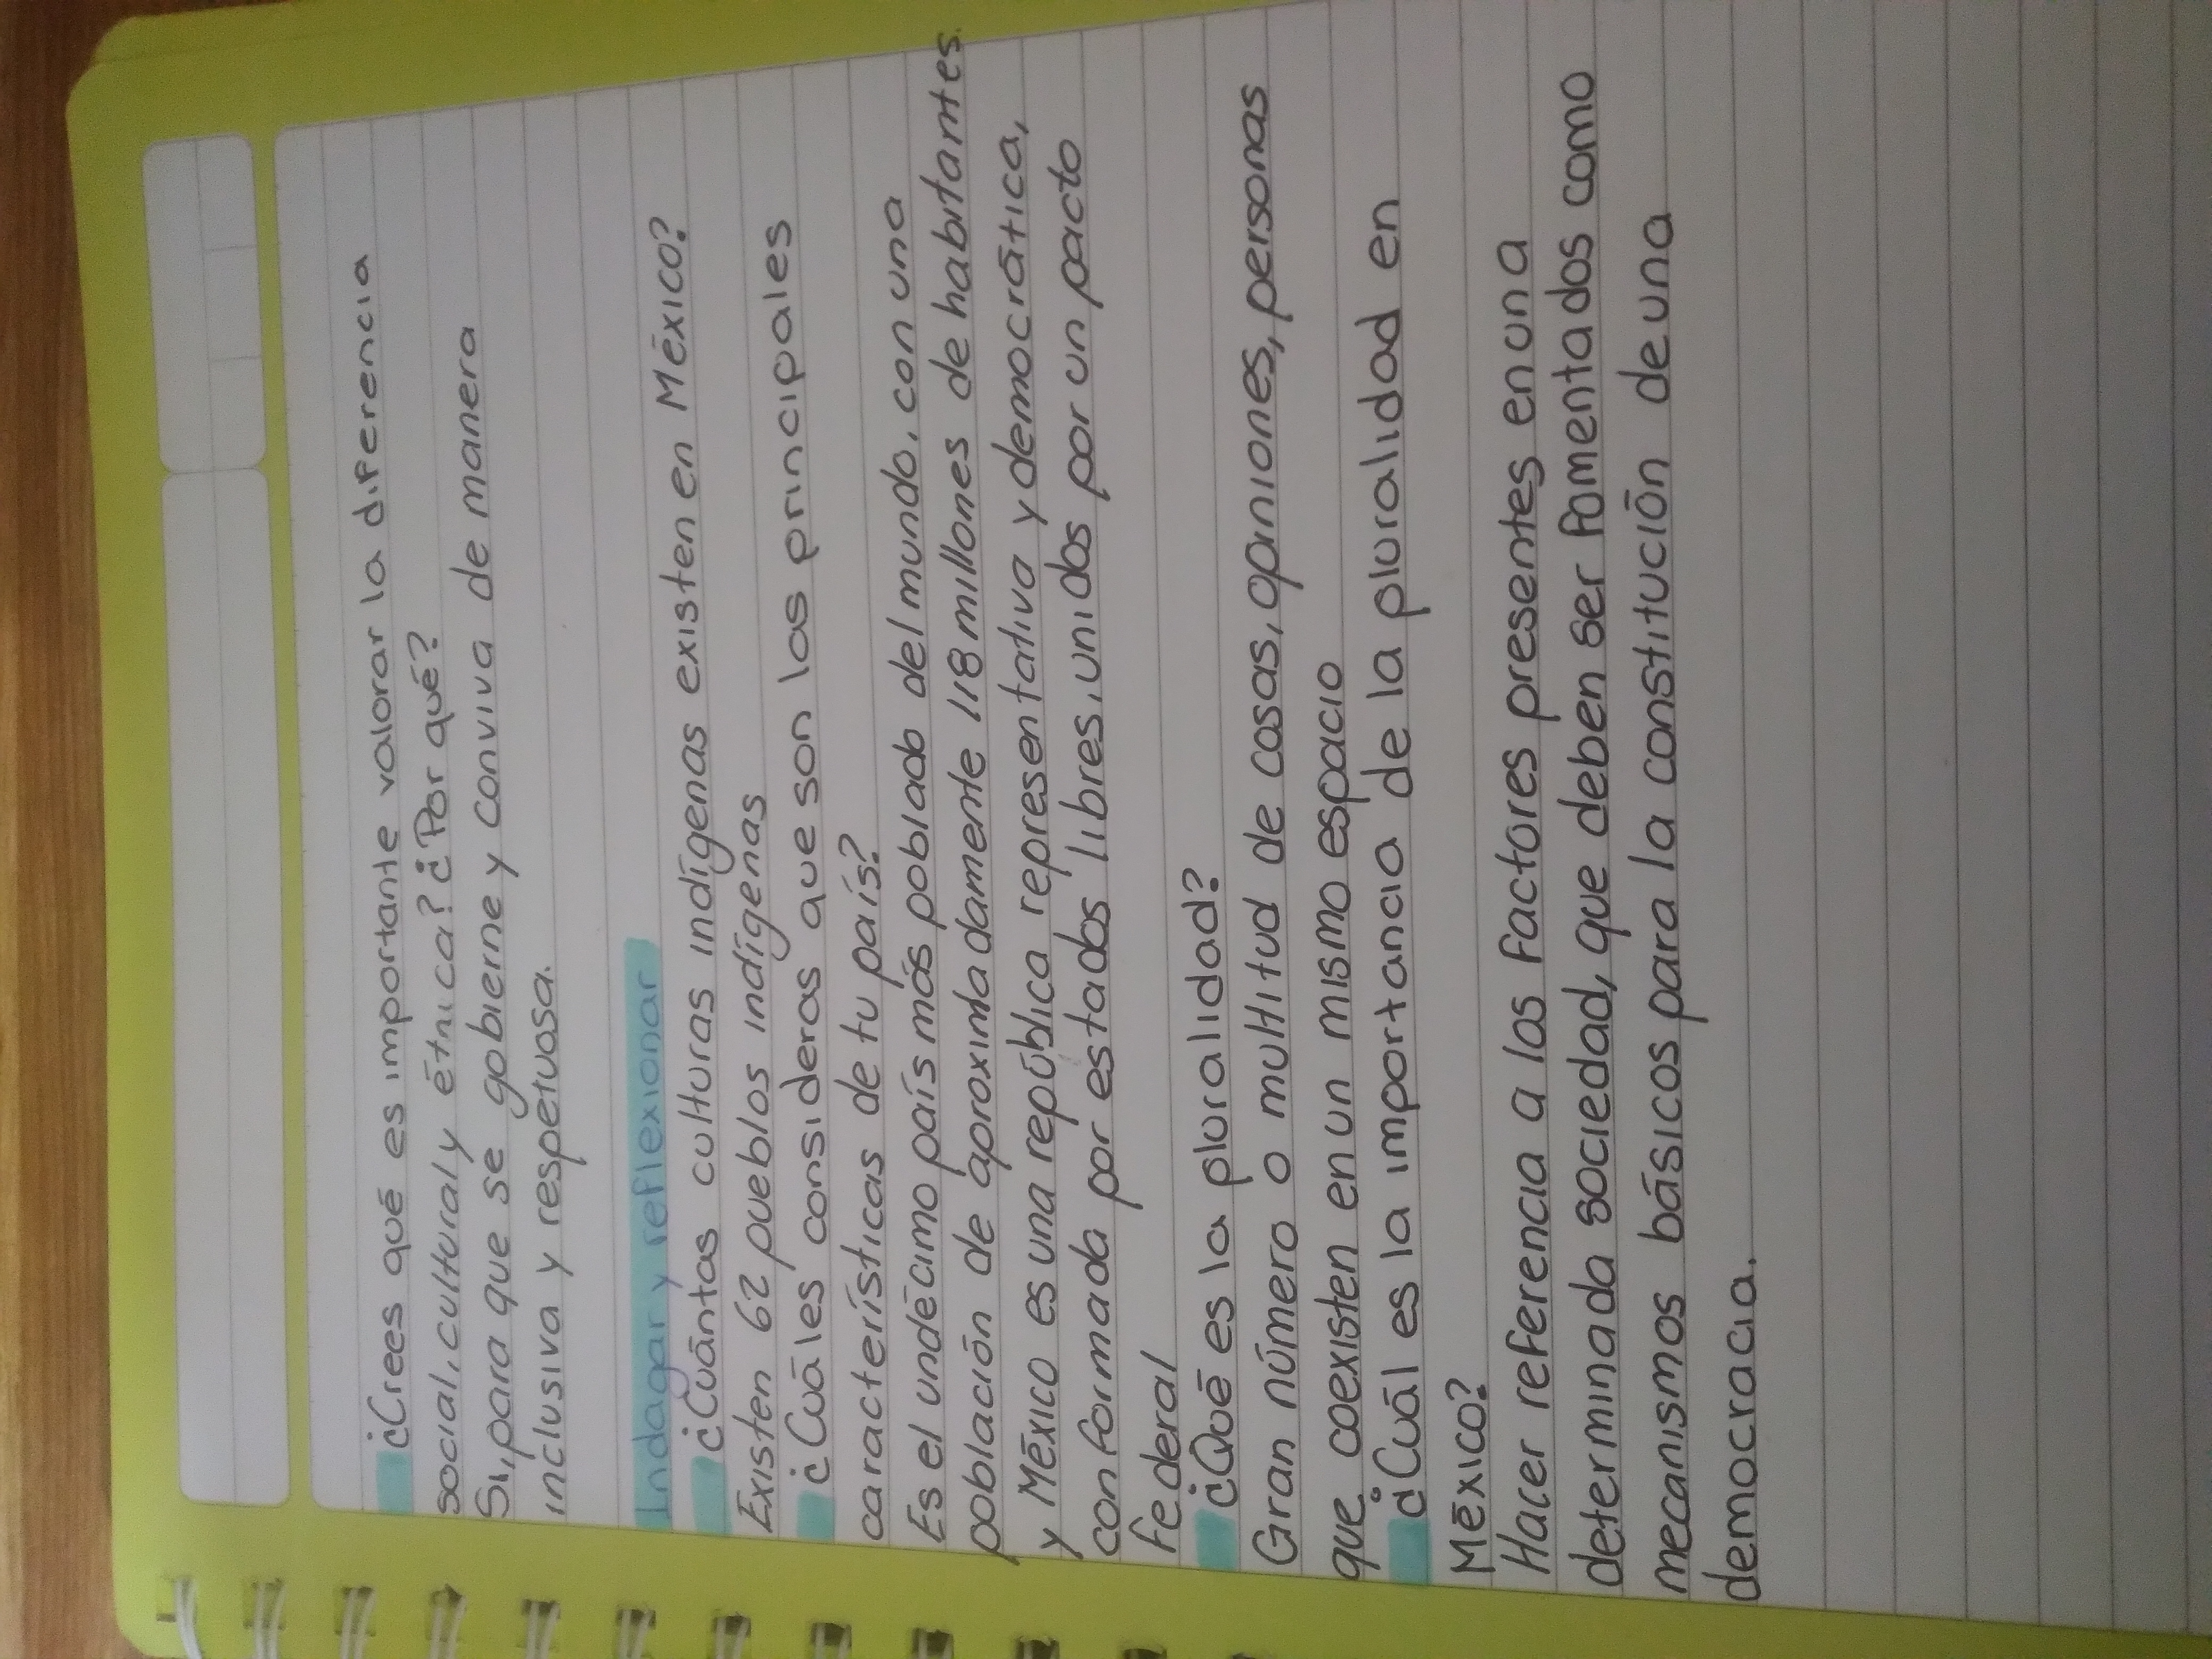 ¿Crees qué es importante valorar la diferencia
social, cultural y étnica? ¿Por qué?
Si, para que se gobierne y conviva de manera
inclusiva y respetuosa.
Indagar y reflexionar
¿Cuántas culturas indígenas existen en México?
Existen 62 pueblos indígenas
¿Cuáles consideras que son las principales
características de tu país?
Es el undécimo país más poblado del mundo, con una
población de aproximadadamente 118 millones de habitantes
y México es una república representativa y democrática,
conformada por estados libres, unidos por un pacto
federal
¿Qué es la pluralidad?
Gran número o multitud de cosas, opniones, personas
que coexisten en un mismo espacio
¿Cuál es la importancia de la pluralidad en
México?
Hacer referencia a los factores presentes en una
determinada sociedad, que deben ser fomentados como
mecanismos básicos para la constitución de una
democracia.